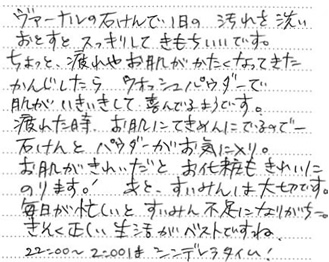 ヴァーナルの石けんで1日の汚れを洗い
おとすとスッキリしてきもちいいです。
ちょっと、疲れやお肌がかたくなってきた
かんじしたらウォッシュパウダーで
肌がいきいきして喜んでるようです。
疲れた時お肌にてきめんにでるので一
石けんとパウダーがお気に入り。
お肌がきれいだとお化粧もきれいに
のります! あと、すいみんは大切です。
毎日が忙しいとすいみん不足になりがち。
きそく正しい生活がベストですね。
22:00〜2:00はシンデレラタイム!